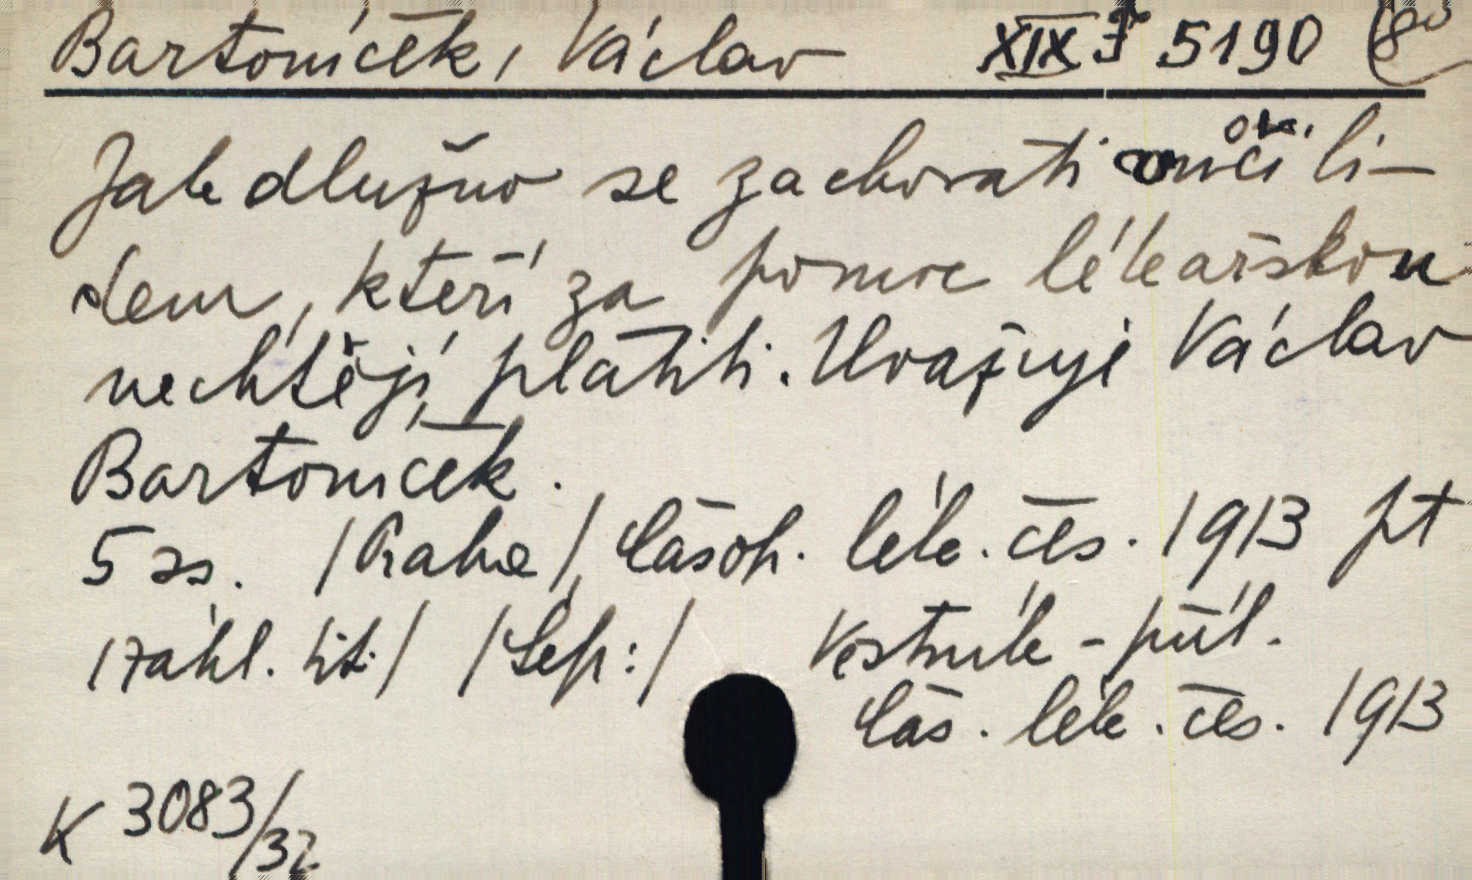 Bartoníček, Václav XIX J 5190
Jak dlužno se zachovati vůči li-
dem, kteří za pomoc lékařskou
nechtějí platiti. Uvažuje Václav
Bartoníček.
5 ss. /Praha/, Časop. lék. čes. 1913 pt
/záhl. tit./ /Sep:/ Věstník - příl.
Čas. lék. čes. 1913
K 3083/32